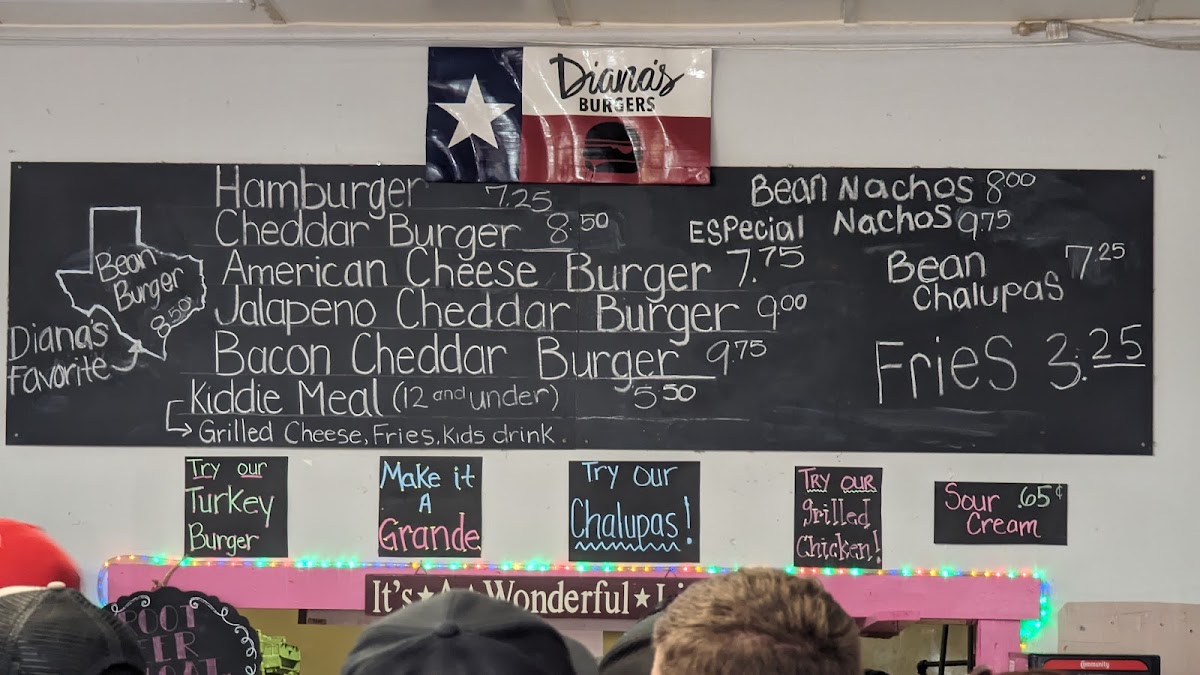 Diana's
BURGERS
Hamburger 7.25
Cheddar Burger 8.50
American Cheese Burger 7.75
Jalapeno Cheddar Burger 9.00
Bacon Cheddar Burger 9.75
Kiddie Meal (12 and under) 5.50
Grilled Cheese, Fries, Kids drink
Bean
Burger
8.50
Diana's
favorite
Bean Nachos 8.00
ESPecial Nachos 9.75
Bean
Chalupas 7.25
Fries 3.25
Try our
Turkey
Burger
Make it
A
Grande
Try Our
Chalupas!
Try our
grilled
Chicken!
Sour .65¢
Cream
It's ★ A ★ Wonderful ★
Community